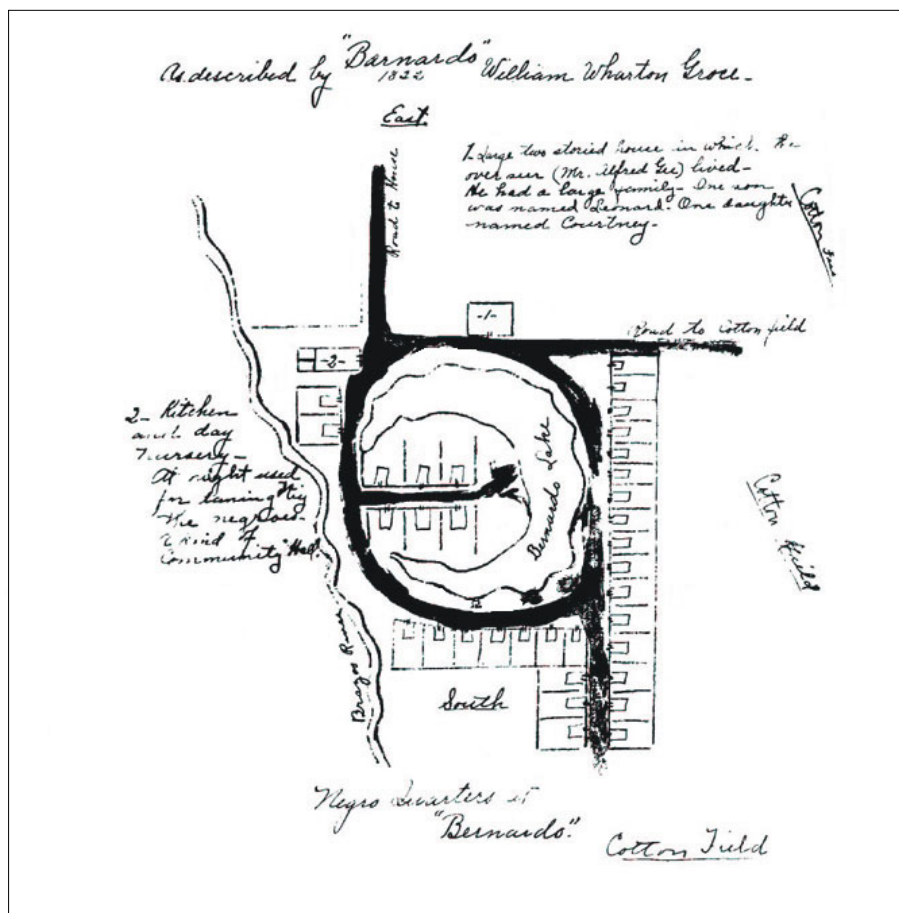 "Barnardo"
As described by 1822 William Wharton Groce-
East.
Road to House
1- Large two storied house in which the
over seer (Mr. Alfred Gee) lived-
He had a large family- One son
was named Leonard. One daughter
named Courtney-
Cotton
-1-
Road to Cotton field
-2-
2- Kitchen
and day
Nursery-
At night used
for
the negroes-
a kind of
Community Hall.
Bernardo Lake
Cotton Feild
Brazos River
South
Negro Quarters at
"Bernardo."
Cotton Field